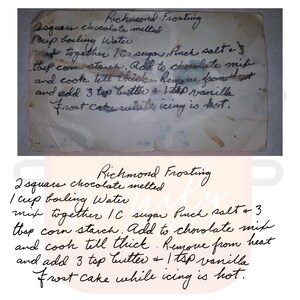 Richmond Frosting
2 squares chocolate melted
1 cup boiling Water
mix together 1 C sugar Pinch salt & 3
tbsp corn starch. Add to chocolate mix
and cook till thick. Remove from heat
and add 3 tsp butter & 1 tsp vanilla
Frost Cake while icing is hot.
Richmond Frosting
2 squares chocolate melted
1 cup boiling Water
mix together 1 C sugar Pinch salt & 3
tbsp corn starch. Add to chocolate mix
and cook till thick. Remove from heat
and add 3 tsp butter & 1 tsp vanilla
Frost Cake while icing is hot.